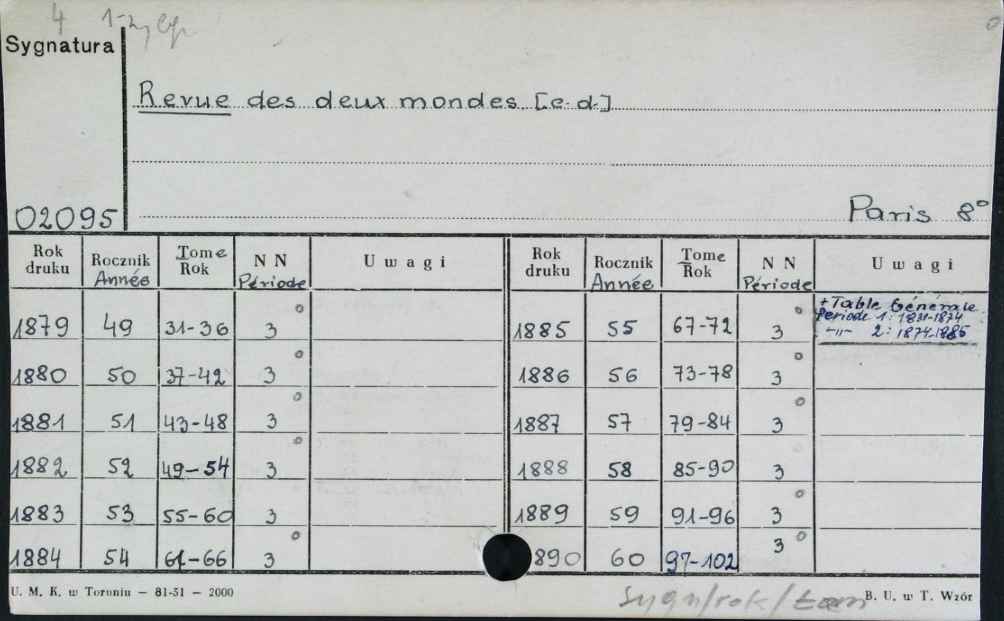 4 1-2
Sygnatura
Revue des deux mondes [c. d.]
02095
Paris 8°
Rok druku Rocznik Année Tome Rok N N Période U w a g i Rok druku Rocznik Année Tome Rok N N Période U w a g i
1879 49 31-36 3° 1885 55 67-72 3° + Table Générale
Periode 1: 1831-1874
-„- 2: 1874-1885
1880 50 37-42 3° 1886 56 73-78 3°
1881 51 43-48 3° 1887 57 79-84 3°
1882 52 49-54 3° 1888 58 85-90 3
1883 53 55-60 3 1889 59 91-96 3°
1884 54 61-66 3° 890 60 97-102 3°
U. M. K. w Toruniu — 81-51 — 2000
Sygn/rok/
B. U. w T. Wzór